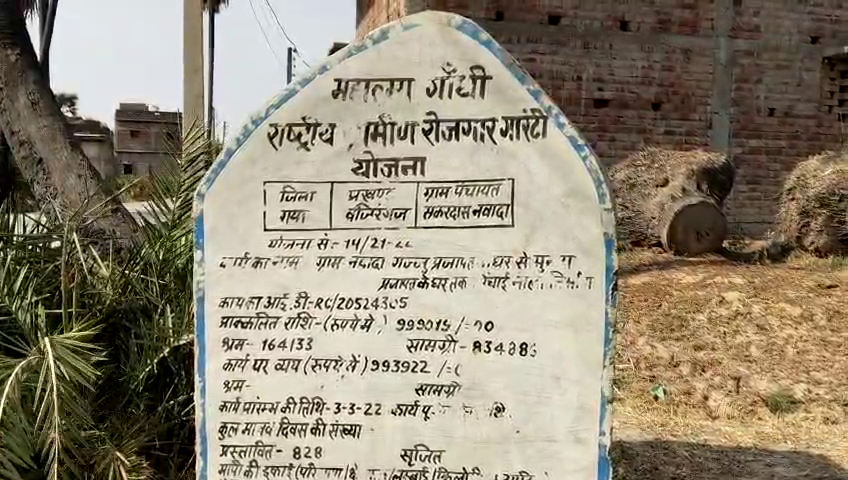 महात्मा गाँधी
राष्ट्रीय ग्रामीण रोजगार गारंटी
योजना
जिला प्रखण्ड ग्राम पंचायत
गया वजिरगंज सकरदास नवादा
योजना सं०- 14/21-22
कार्य का नाम ग्राम नवादा गज्जु प्रजापत घर से
प्रजापत के घर तक निर्माण
कार्य का आई.डी-RC/20524305
प्राक्कलित राशि-(रुपये में) 999019/=
श्रम- 164133 सामग्री- 834886
कार्य पर व्यय (रुपये में) 993922/=
श्रम- सामग्री
कार्य प्रारम्भ की तिथि-3-3-22 कार्य
कुल मानव दिवस की संख्या
प्रस्तावित- 828 सृजित
मापी की इकाई